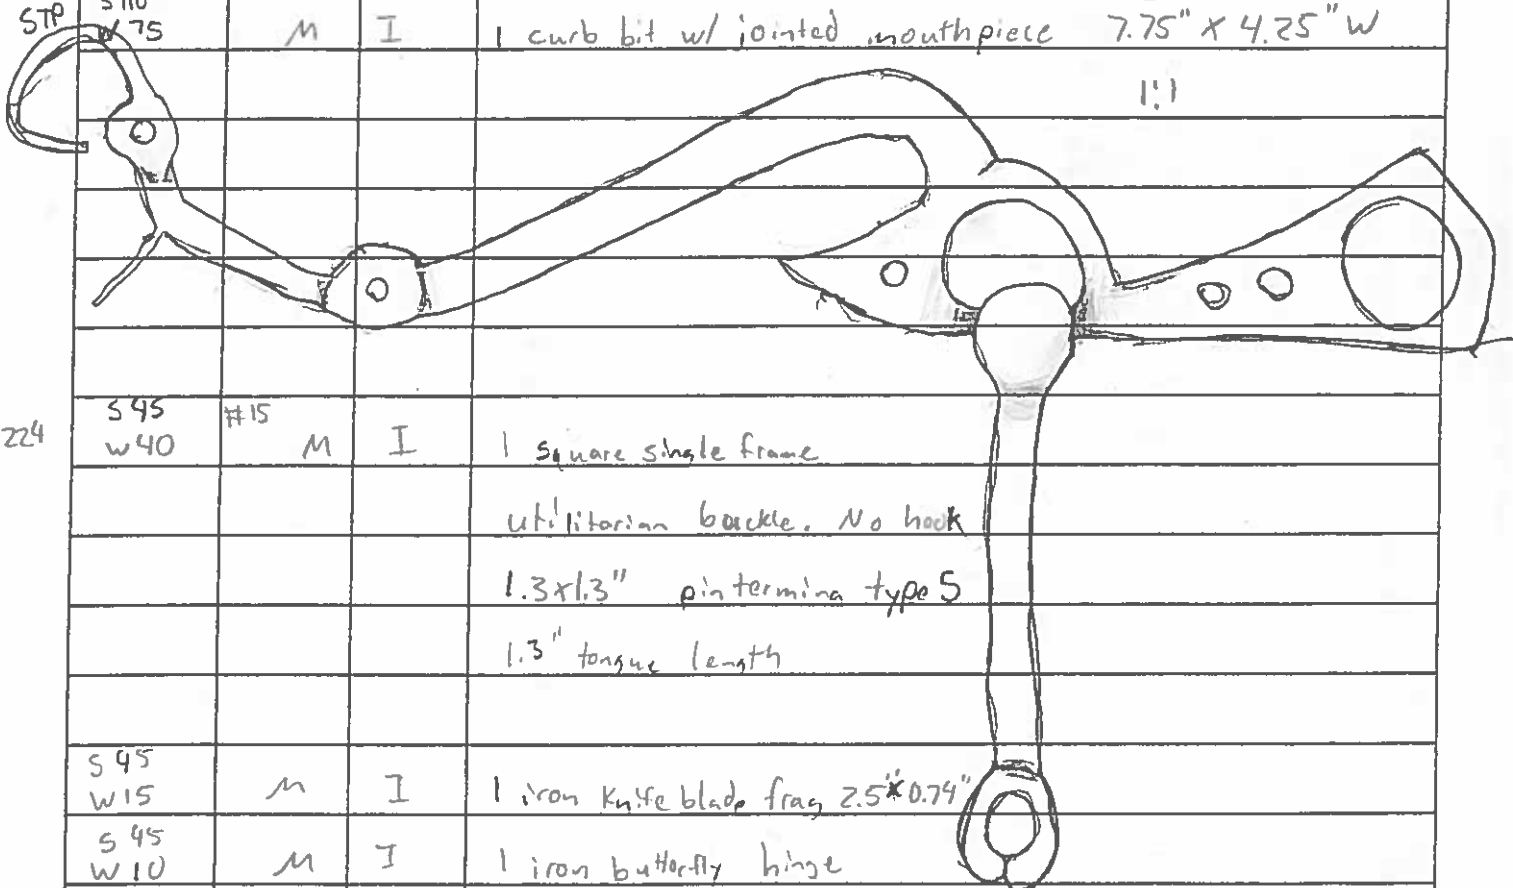 STP S110 W75 M I 1 curb bit w/ jointed mouthpiece 7.75" X 4.25" W
1:1
224 S45 W40 #15 M I 1 square single frame
utilitarian buckle. No hook
1.3x1.3" pintermina type 5
1.3" tongue length
S45 W15 M I 1 iron knife blade frag 2.5" x 0.74"
S45 W10 M I 1 iron butterfly hinge